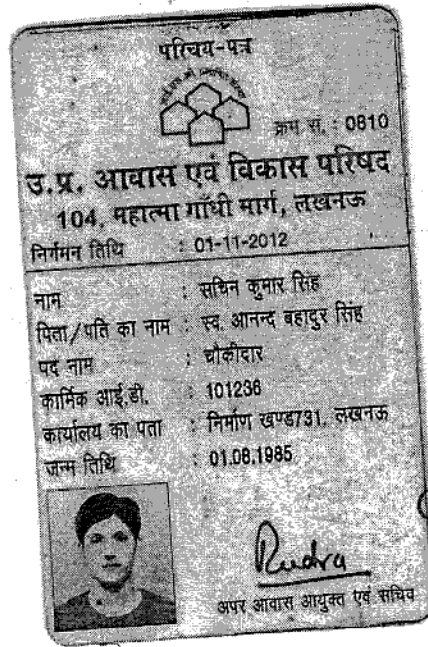 परिचय-पत्र
क्रम सं. : 0810
उ.प्र. आवास एवं विकास परिषद
104, महात्मा गाँधी मार्ग, लखनऊ
निर्गमन तिथि : 01-11-2012
नाम : सचिन कुमार सिंह
पिता/पति का नाम : स्व. आनन्द बहादुर सिंह
पद नाम : चौकीदार
कार्मिक आई.डी. : 101236
कार्यालय का पता : निर्माण खण्ड731, लखनऊ
जन्म तिथि : 01.08.1985
Rudra
अपर आवास आयुक्त एवं सचिव